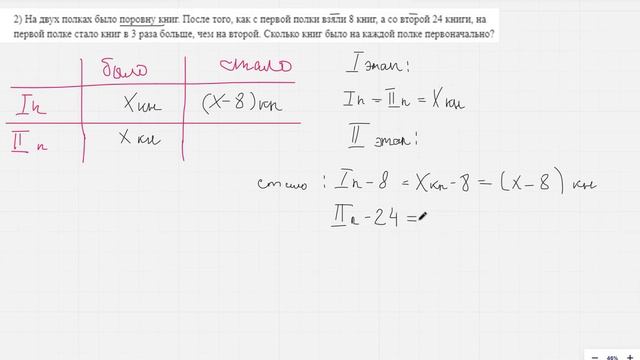 2) На двух полках было поровну книг. После того, как с первой полки взяли 8 книг, а со второй 24 книги, на
первой полке стало книг в 3 раза больше, чем на второй. Сколько книг было на каждой полке первоначально?
было стало
I п X кн (X-8) кн
II п X кн
I этап:
I п = II п = X кн
II этап:
стало : I п - 8 = X кн - 8 = (X - 8) кн
II п - 24 =
46%